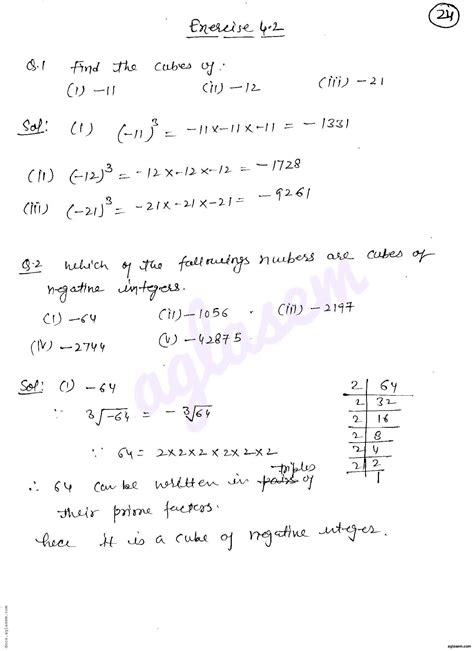 24
Exercise 4.2
Q.1 Find the cubes of:
(i) -11 (ii) -12 (iii) -21
Sol: (i) (-11)³ = -11x-11x-11 = -1331
(ii) (-12)³ = -12x-12x-12 = -1728
(iii) (-21)³ = -21x-21x-21 = -9261
Q.2 Which of the followings numbers are cubes of
negative integers.
(i) -64 (ii) -1056 . (iii) -2197
(iv) -2744 (v) -42875
Sol: (i) -64
∵ 3√-64 = -3√64
∵ 64 = 2x2x2x2x2x2
2 | 64
2 | 32
2 | 16
2 | 8
2 | 4
2 | 2
1
triples
∴ 64 can be written in pairs of
their prime factors.
hece it is a cube of negative integer.
aglasem
docs.aglasem.com
aglasem.com